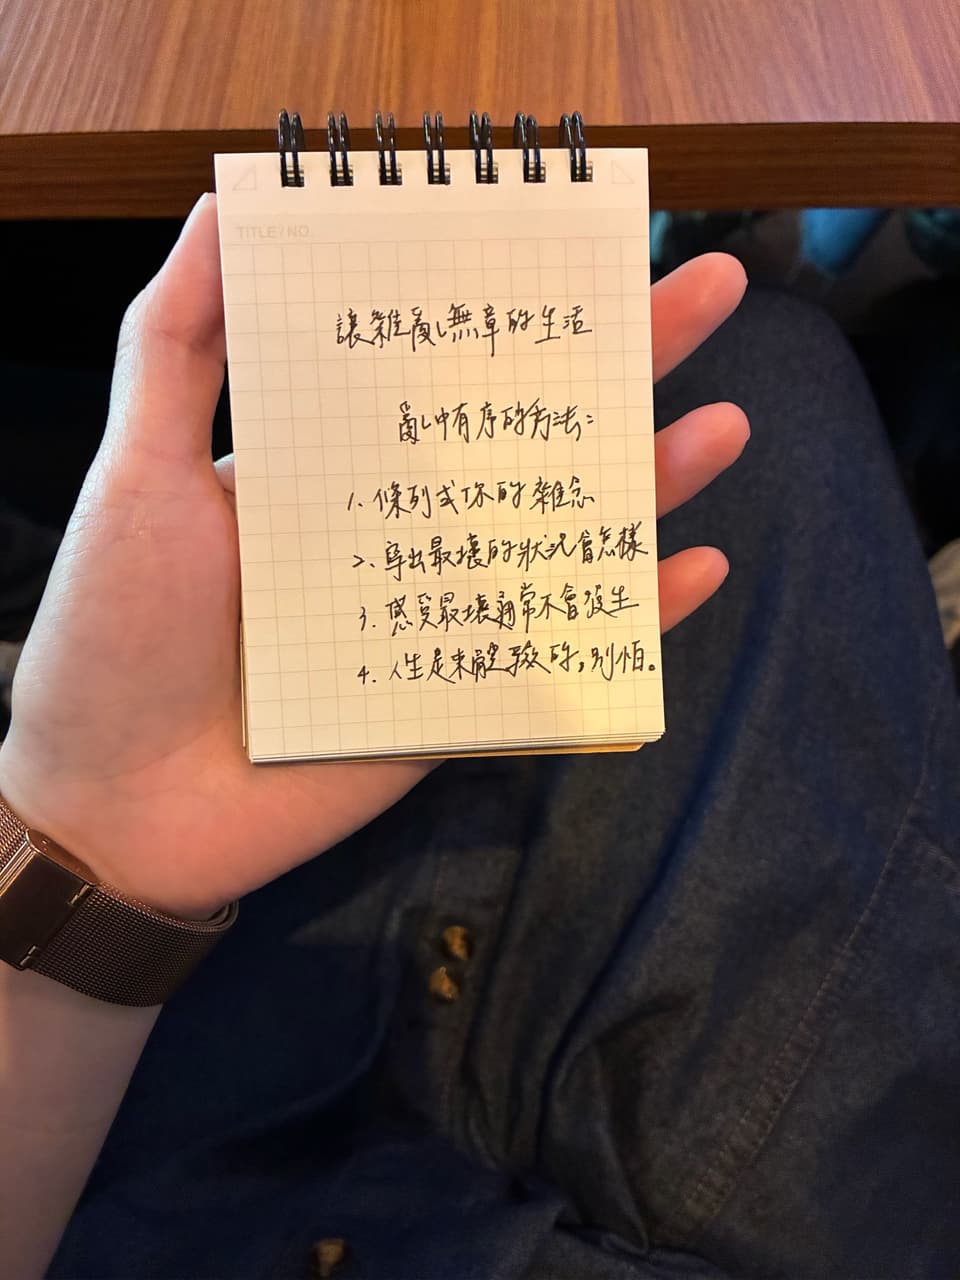 TITLE / NO.
讓雜亂無章的生活
亂中有序的方法:
1. 條列式你的雜念
2. 寫出最壞的狀況會怎樣
3. 感受最壞通常不會發生
4. 人生是來體驗的,別怕。